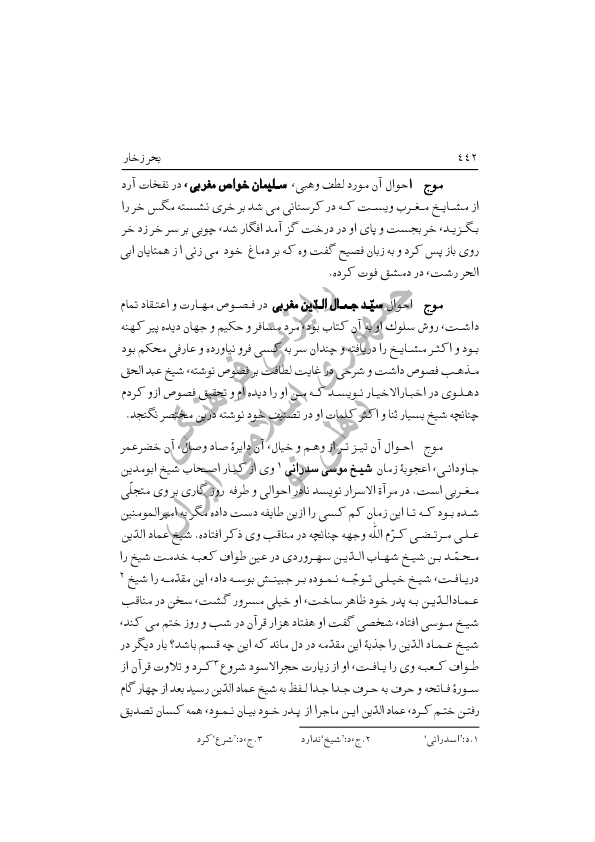 ٤٤٢ بحر زخار
موج احوال آن مورد لطف وهبی، سلیمان خواص مغربی، در نفخات آرد
از مشایخ مغرب ویست که در کرسنانی می شد بر خری نشسته مگس خر را
بگزید، خر بجست و پای او در درخت گز آمد افگار شد، چوبی بر سر خر زد خر
روی باز پس کرد و به زبان فصیح گفت وه که بر دماغ خود می زنی از همتایان ابی
الحر رشت، در دمشق فوت کرده.
موج احوال سیّد جمال الدّین مغربی در فصوص مهارت و اعتقاد تمام
داشت، روش سلوك او به آن کتاب بود، مرد مسافر و حکیم و جهان دیده پیر کهنه
بود و اکثر مشایخ را دریافته و چندان سر به کسی فرو نیاورده و عارفی محکم بود
مذهب فصوص داشت و شرحی در غایت لطافت بر فصوص نوشته، شیخ عبد الحق
دهلوی در اخبارالاخیار نویسد که من او را دیده ام و تحقیق فصوص ازو کردم
چنانچه شیخ بسیار ثنا و اکثر کلمات او در تصنیف خود نوشته درین مختصر نگنجد.
موج احوال آن تیز تر از وهم و خیال، آن دایرۀ صاد وصال، آن خضر عمر
جاودانی، اعجوبۀ زمان شیخ موسی سدرانی ۱ وی از کبار اصحاب شیخ ابومدین
مغربی است. در مرآة الاسرار نویسد نادر احوالی و طرفه روزگاری بر وی متجلّی
شده بود که تا این زمان کم کسی را ازین طایفه دست داده مگر به امیرالمومنین
علی مرتضی کرّم الله وجهه چنانچه در مناقب وی ذکر افتاده. شیخ عماد الدّین
محمّد بن شیخ شهاب الدّین سهروردی در عین طواف کعبه خدمت شیخ را
دریافت، شیخ خیلی توجّه نموده بر جبینش بوسه داد، این مقدّمه را شیخ ۲
عمادالدّین به پدر خود ظاهر ساخت، او خیلی مسرور گشت، سخن در مناقب
شیخ موسی افتاد، شخصی گفت او هفتاد هزار قرآن در شب و روز ختم می کند،
شیخ عماد الدّین را جذبۀ این مقدّمه در دل ماند که این چه قسم باشد؟ بار دیگر در
طواف کعبه وی را یافت، او از زیارت حجرالاسود شروع ۳ کرد و تلاوت قرآن از
سورۀ فاتحه و حرف به حرف جدا جدا لفظ به شیخ عماد الدّین رسید بعد از چهار گام
رفتن ختم کرد، عماد الدّین این ماجرا از پدر خود بیان نمود، همه کسان تصدیق
۱.د:'اسدرانی' ۲.ج،د:'شیخ' ندارد ۳.ج،د:'شرع' کرد
رایزنی فرهنگی
جمهوری اسلامی ایران
دهلی نو